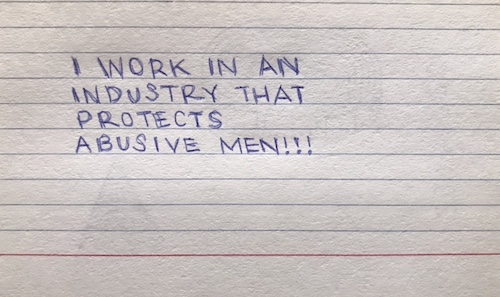 I WORK IN AN
INDUSTRY THAT
PROTECTS
ABUSIVE MEN!!!